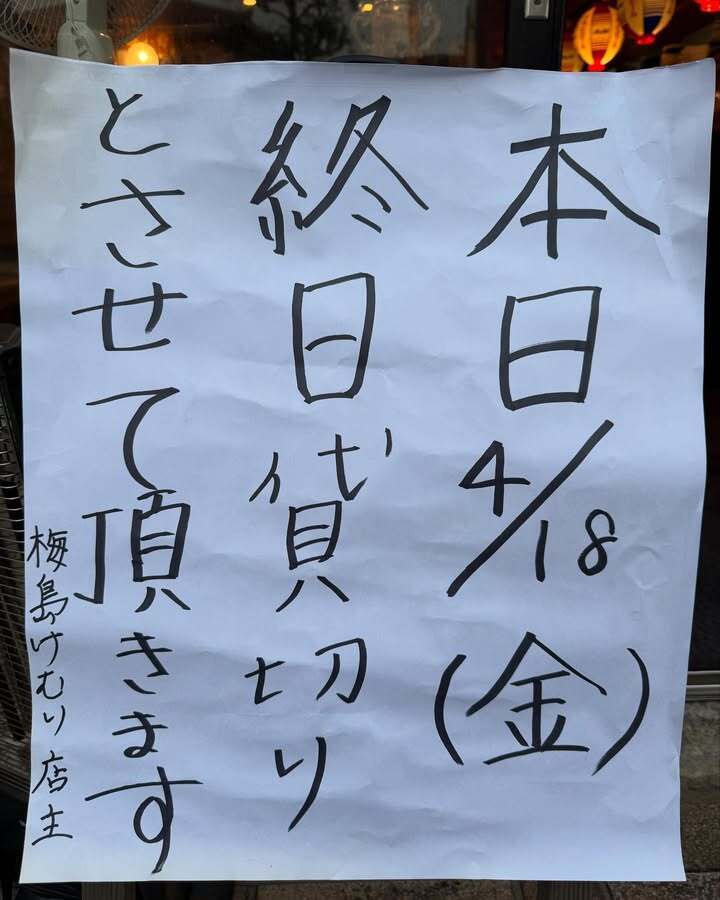 本日4/18(金)
終日貸切り
とさせて頂きます
梅島けむり店主